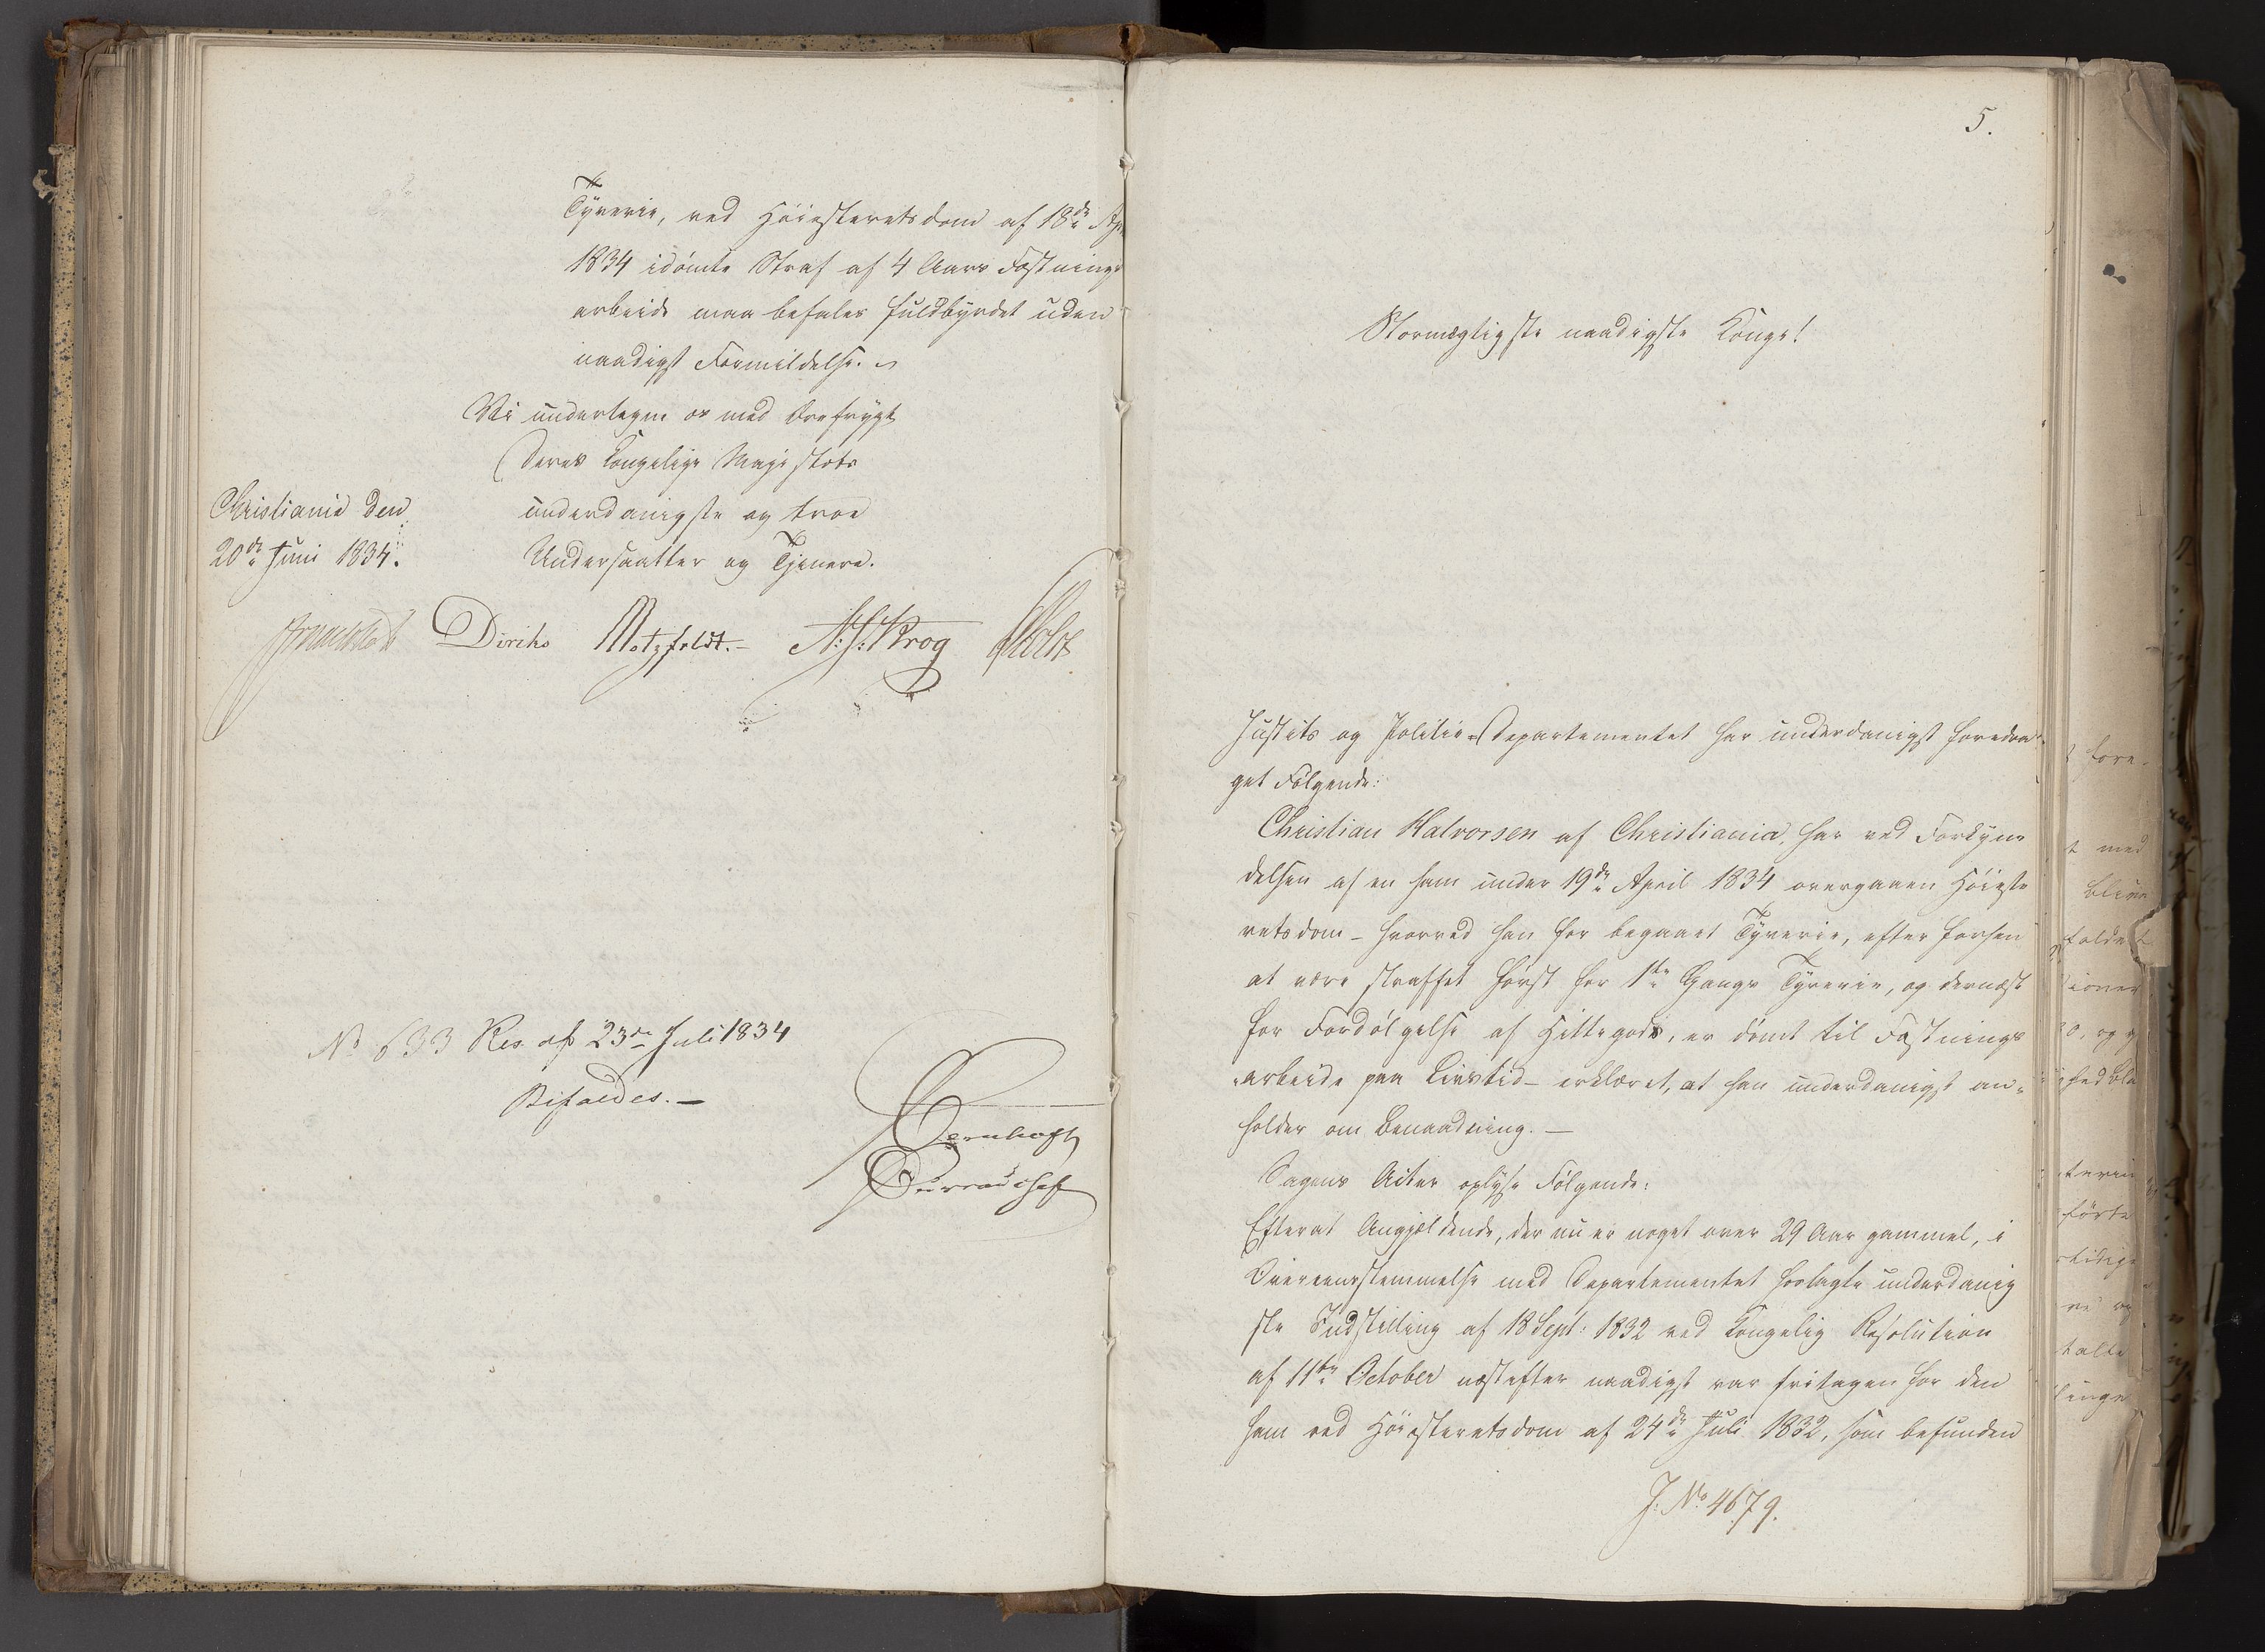 Tyverie, ved Høiesterets dom af 18de Apr
1834 idømte Straf af 4 Aars Fæstnings
arbeide maa befales fuldbyrdet uden
naadigst Formildelse.
Vi undertegne os med Ærefrygt
Deres Kongelige Majestæts
Christiania den
underdanigste og troe
20de Juni 1834.
Undersaatter og Tjenere.
Diriks Motzfeldt. N: J: Krog Holst
No 633 Res. af 23de Juli 1834
Bifaldes. —
Bernhoft
Bureauchef
5.
Stormægtigste naadigste Konge!
Justits og Politie-Departementet har underdanigst foredra-
get Følgende:
Christian Halvorsen af Christiania, har ved Forkyn
delsen af en ham under 19de April 1834 overgaaen Høieste
retsdom – hvorved han for begaaet Tyverie, efter forhen
at være straffet først for 1ste Gangs Tyverie, og dernæst
for Fordølgelse af Hittegods, er dømt til Fæstnings
arbeide paa Livstid – erklæret, at han underdanigst an-
holder om Benaadning. —
Sagens Acter oplyse Følgende:
Efterat Angjældende, der nu er noget over 29 Aar gammel, i
Overeensstemmelse med Departementet forlagte underdanig
ste Indstilling af 18 Sept: 1832 ved Kongelig Resolution
af 11te October næstefter naadigst var fritagen for den
ham ved Høiesteretsdom af 24de Juli 1832, som befunden
J. No 4679.